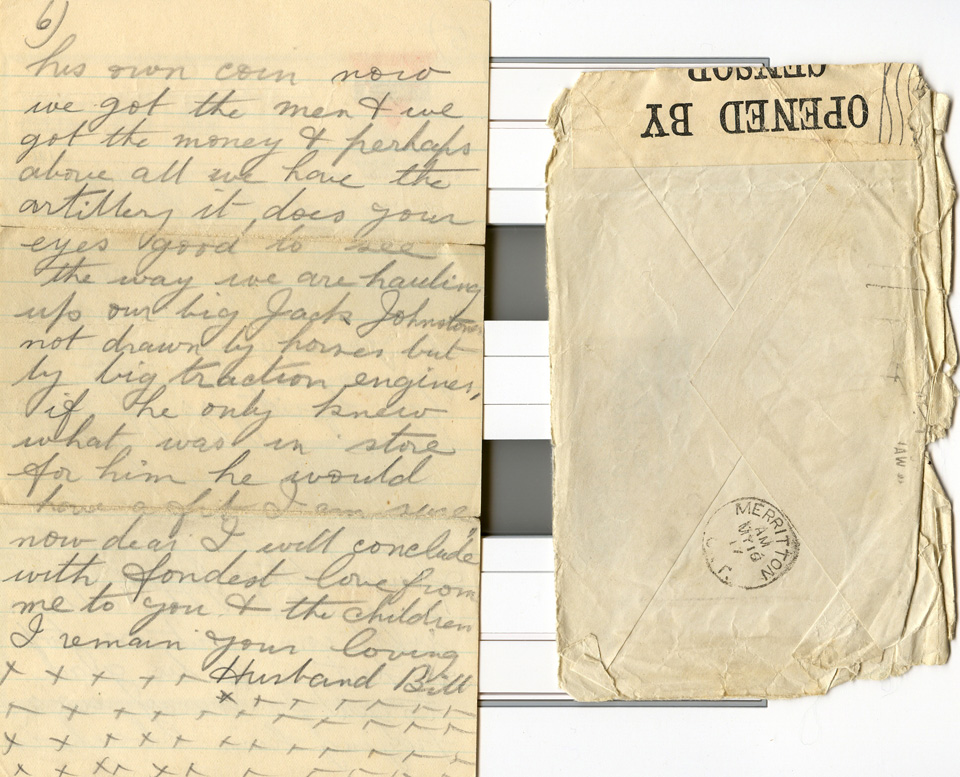 6)
his own coin now
we got the men & we
got the money & perhaps
above all we have the
artillery it does your
eyes good to see
the way we are hauling
up our big Jack Johnstons
not drawn by horses but
by big traction engines,
if he only knew
what was in store
for him he would
have a fit I am sure
now dear I will conclude
with fondest love from
me to you & the children
I remain your loving
Husband Bill
x x x x x x
OPENED BY
CENSOR
MERRITTON
AM
MY 16
17